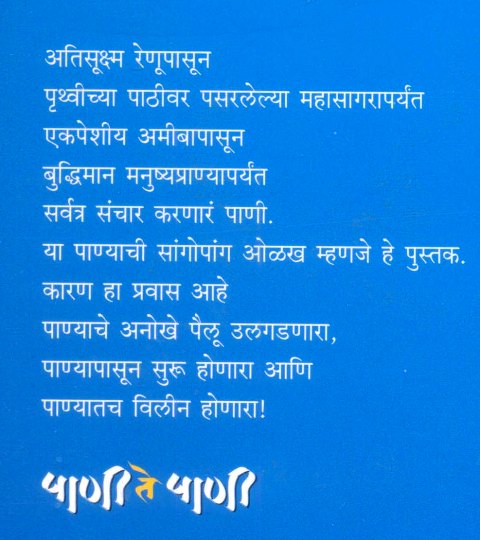 अतिसूक्ष्म रेणूपासून
पृथ्वीच्या पाठीवर पसरलेल्या महासागरापर्यंत
एकपेशीय अमीबापासून
बुद्धिमान मनुष्यप्राण्यापर्यंत
सर्वत्र संचार करणारं पाणी.
या पाण्याची सांगोपांग ओळख म्हणजे हे पुस्तक.
कारण हा प्रवास आहे
पाण्याचे अनोखे पैलू उलगडणारा,
पाण्यापासून सुरू होणारा आणि
पाण्यातच विलीन होणारा!
पाणी ते पाणी